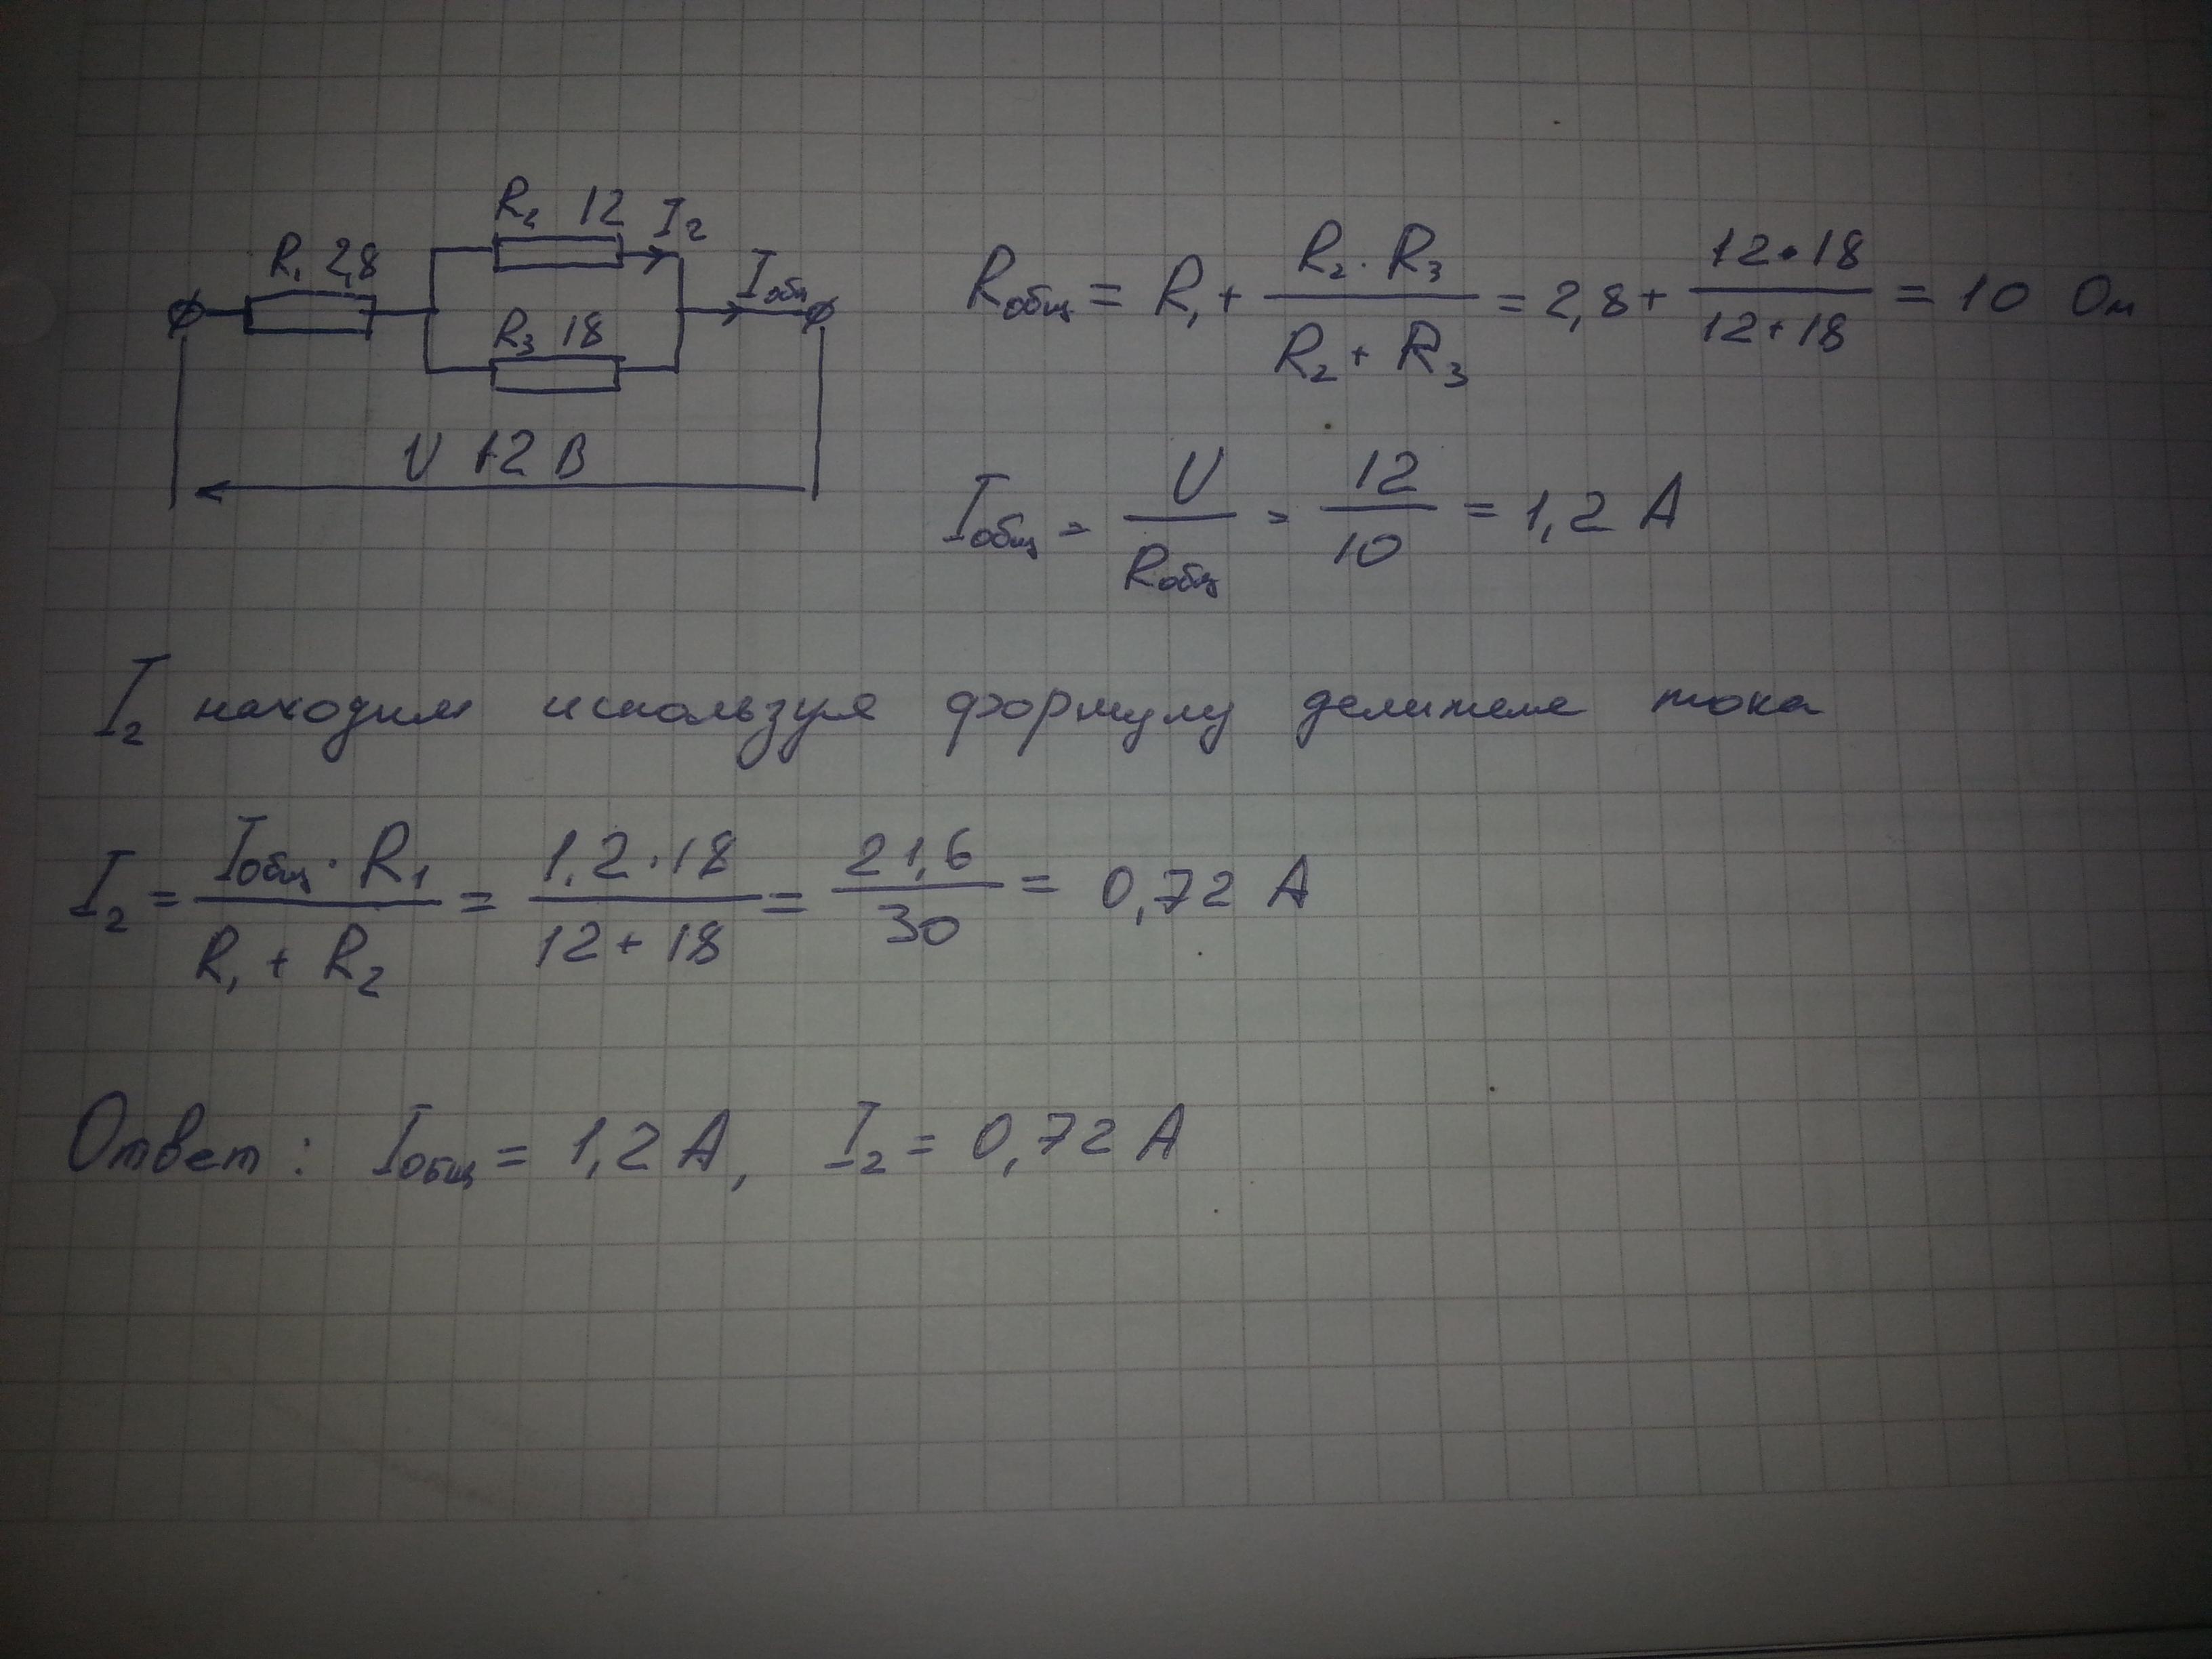 R₁ 2,8
R₂ 12
I₂
R₃ 18
Iобщ
U 12 В
Rобщ = R₁ + (R₂ · R₃)/(R₂ + R₃) = 2,8 + (12 · 18)/(12 + 18) = 10 Ом
Iобщ = U/Rобщ = 12/10 = 1,2 А
I₂ находим используя формулу делителя тока
I₂ = (Iобщ · R₁)/(R₁ + R₂) = (1,2 · 18)/(12 + 18) = 21,6/30 = 0,72 А
Ответ: Iобщ = 1,2 А, I₂ = 0,72 А